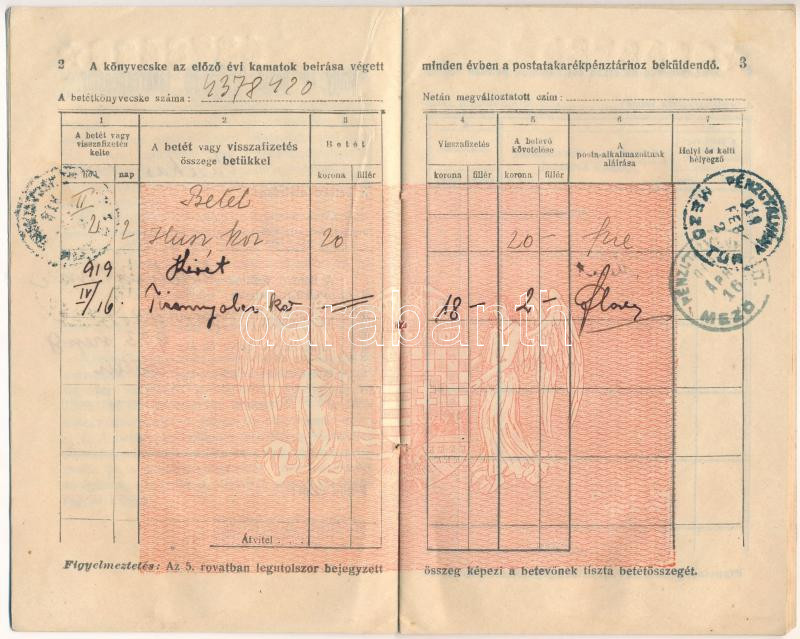 2 A könyvecske az előző évi kamatok beirása végett
minden évben a postatakarékpénztárhoz beküldendő. 3
A betétkönyvecske száma: 4378420
Netán megváltoztatott czím:
1 2 3
4 5 6 7
A betét vagy visszafizetés kelte
A betét vagy visszafizetés összege betükkel
Betét
Visszafizetés
A betevő követelése
A posta-alkalmazottnak aláirása
Helyi és kelti bélyegző
hó nap
korona fillér
korona fillér korona fillér
Betét
II 2 Husz kor 20
20 –
919 Kivét
IV/16 Tizennyolcz ko
18 – 2 –
PÉNZÜGY
919 FEB
MEZŐ
APR 16
MEZŐ
darabanth
Átvitel . . . .
Figyelmeztetés: Az 5. rovatban legutolszor bejegyzett
összeg képezi a betevőnek tiszta betétösszegét.